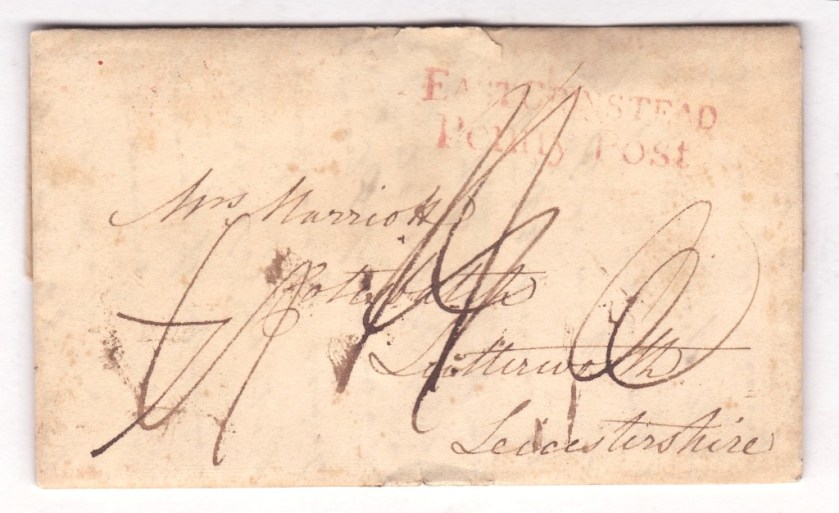 EAST GRINSTEAD
Penny Post
Mrs Marriott
Cotesbatch
Lutterworth
Leicestershire